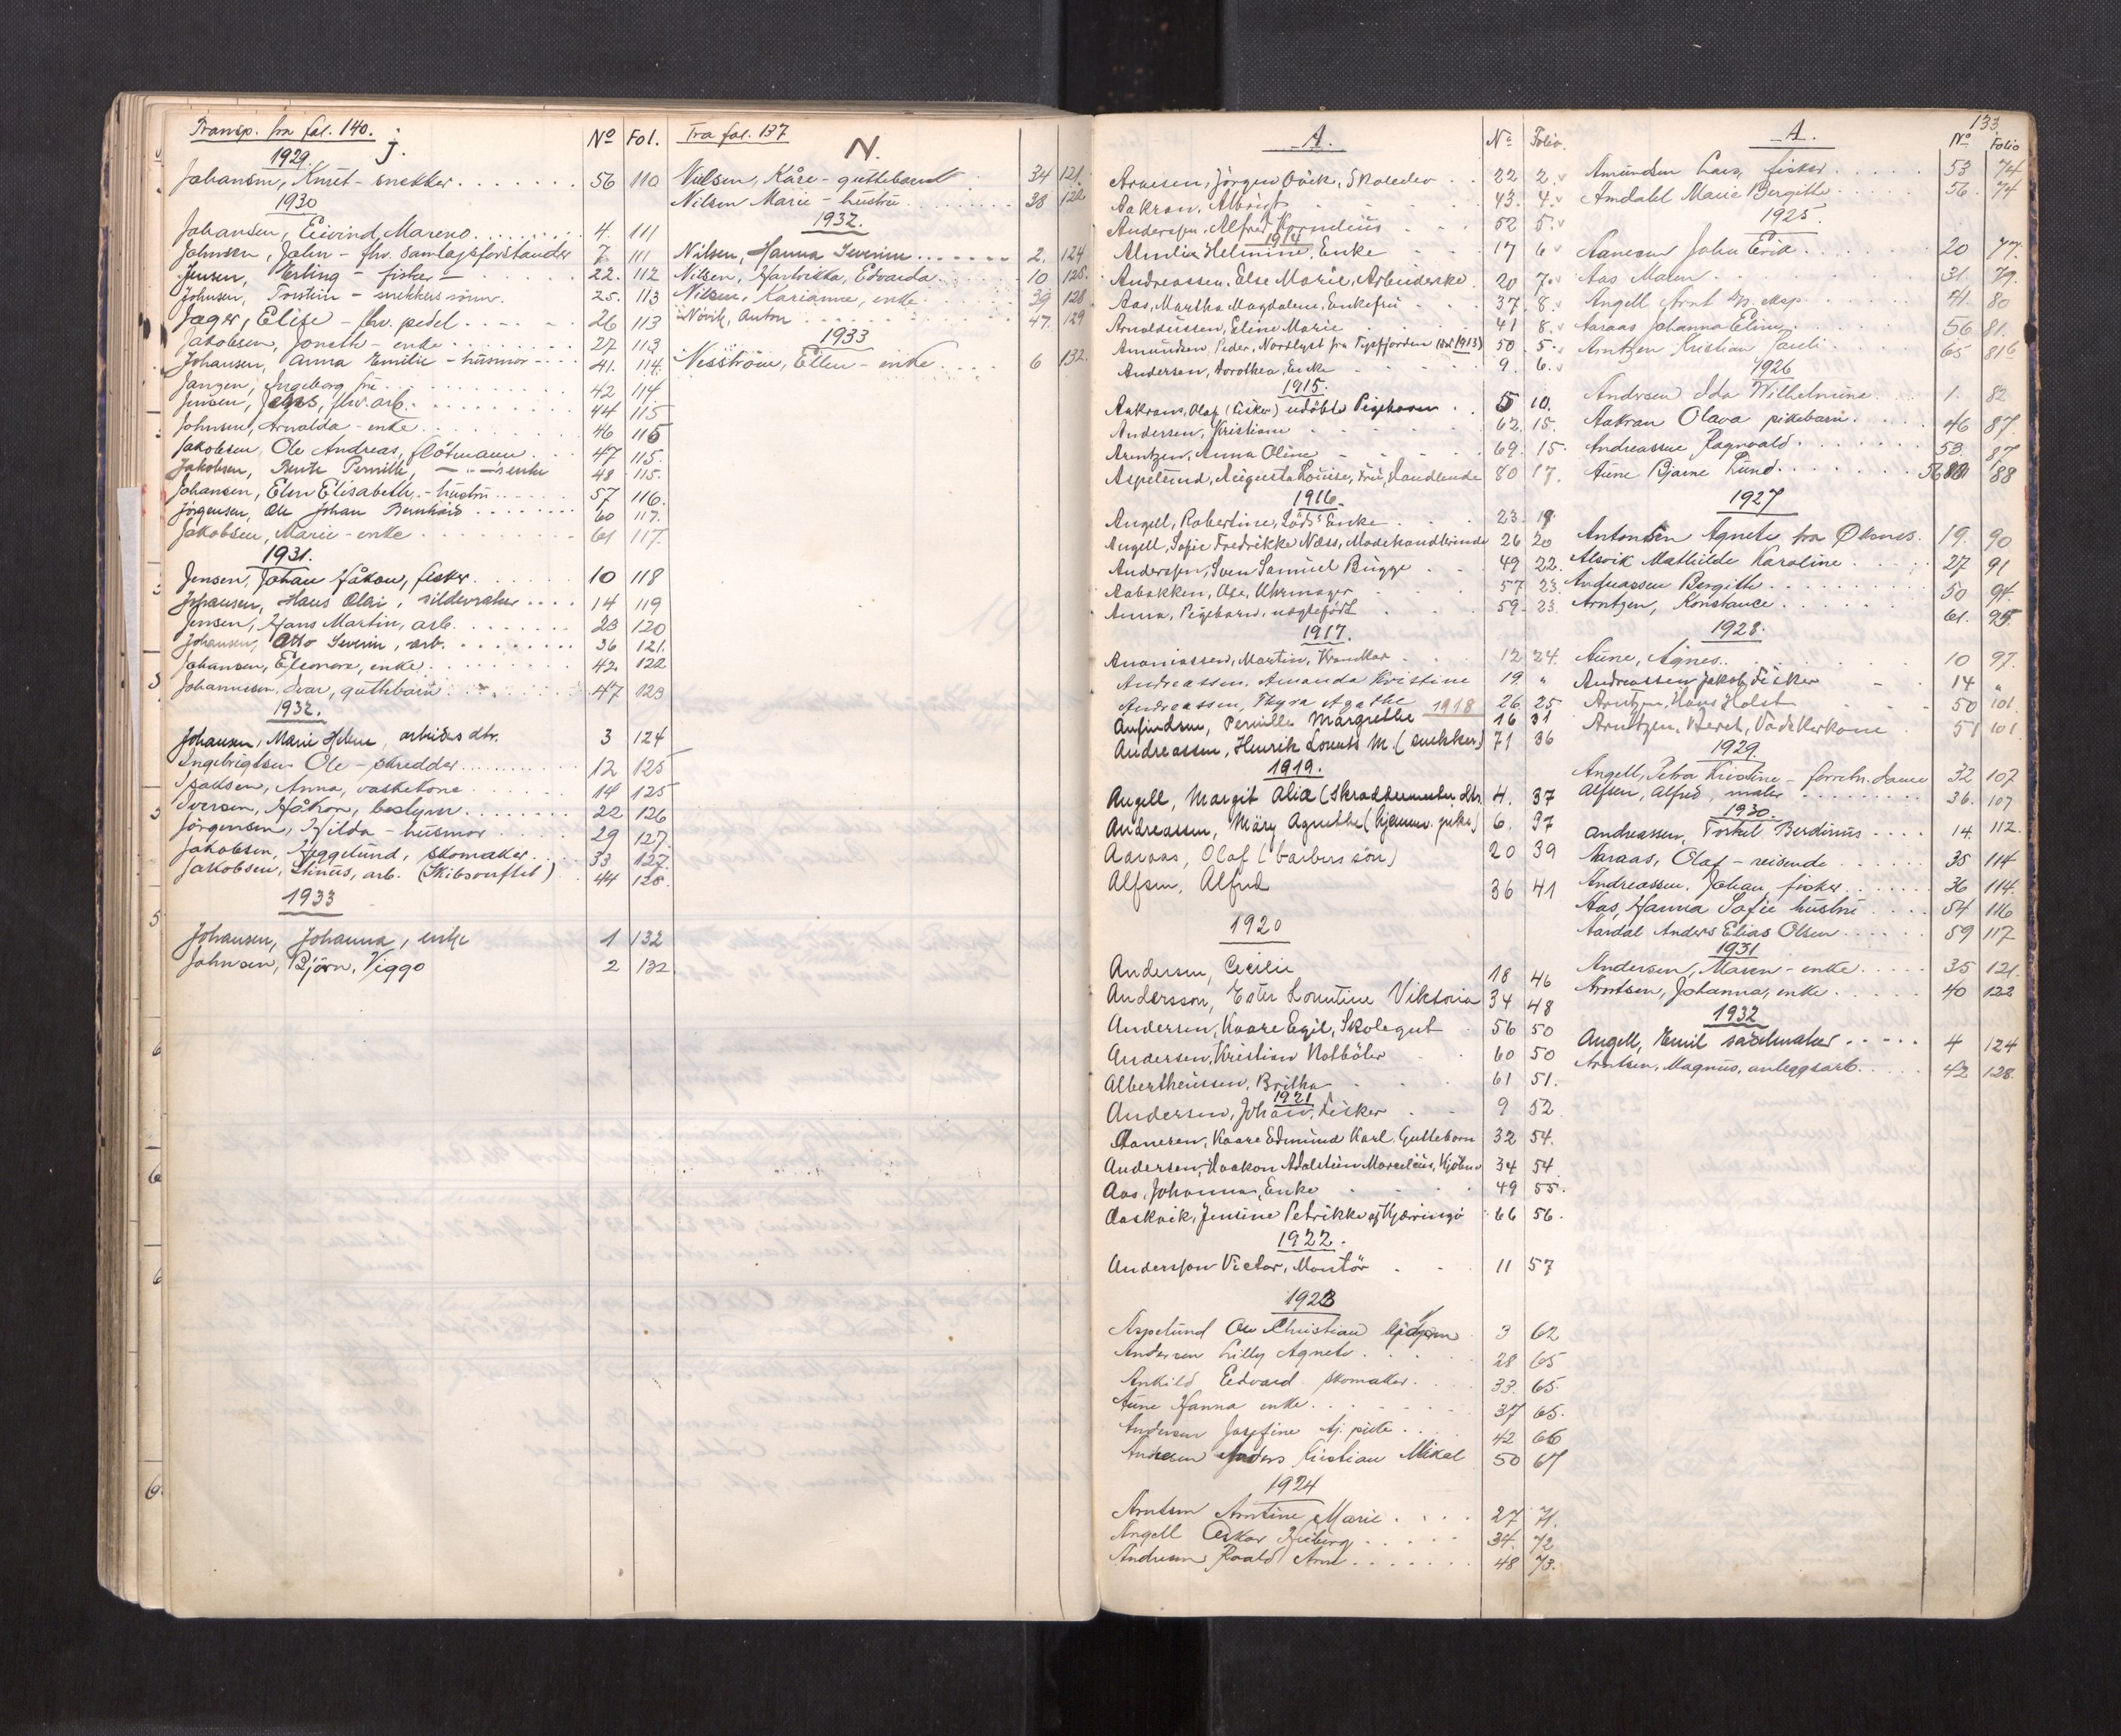 Transp. fra fol. 140. j. No Fol.
1929.
Johansen, Knut - snekker 56 110
1930
Johansen, Eivind Mareno 4. 111
Johnsen, Jahn - fhv. Samlagsforstander 7. 111
Jensen, Erling - fisker 22. 112
Johnsen, - snekkers sønn. 25. 113
Jæger, Elise - fhv. pedel 26 113
Jakobsen, - enke 27 113
Johansen, Anna Emilie - husmor 41. 114.
Jangen, Ingeborg, fru 42 114.
Jensen, fhv. arb. 44 115
Johnsen, Arnalda - enke 46 115
Jakobsen, Ole Andreas, flötmann 47 115.
Jakobsen, Pernille, enke 48 115.
Johansen, Elen Elisabeth, - hustru 57 116.
Jörgensen, Ole Johan Bernhard 60 117.
Jakobsen, Marie - enke 61 117.
1931.
Jensen, Johan Håkon, fisker 10 118
Johansen, Hans Olai, sildevraker 14 119
Jensen, Hans Martin, arb. 23 120
Johansen, Otto Severin, arb. 36 121.
Johansen, Eleonora, enke 42 122
Johannesen, Ivar, guttebarn 47 123
1932.
Johansen, Marie Helene, arbeiders dtr. 3 124
Ingebrigtsen Ole - skredder 12 125
Isaksen, Anna, vaskekone 14 125
Iversen, Håkon, bestyrer 22 126
Jörgensen, Hilda - husmor 29 127.
Jakobsen, Heggelund, skomaker 33 127.
Jakobsen, arb. (Skibsverftet) 44 128.
1933
Johansen, Johanna, enke 1 132
Johnsen, Björn, Viggo 2 132
Fra fol. 137 N.
Nilsen, Kåre - guttebarn 34 121.
Nilsen Marie - hustru 38 122
1932.
Nilsen, Hanna Severine 2. 124
Nilsen, Hartvikka, Edvarda 10 125.
Nilsen, Karianne, enke 39 128
Novik, Anton 47. 129
1933
Nesström, Ellen - enke 6 132.
A. No Folio.
Arnesen, Jörgen 22 2.
Aakran, Albrigt 43. 4.
Andersen, Alfred Kornelius 52 5.
1914
Almlie Helmine, Enke 17 6
Andreassen, Else Marie, Arbeiderske 20 7.
Aas, Martha Magdalene, Enkefru 37. 8.
Arnoldussen, Eline Marie 41 8.
Amundsen, Peder, Nordlyst fra Tysfjorden (1913) 50 5.
Andersen, Dorothea, Enke 9. 6.
1915.
Aakrans, Olaf (Fisker) udöbte Pigebarn 5 10.
Andersen, Kristiane 62. 15.
Arentzen, Anna Oline 69. 15.
Aspelund, Augusta Louise, Fru, Handlende 80 17.
1916.
Angell, Robertine, Enke 23. 19.
Angell, Sofie Fredrikke Næss, Modehandlerinde 26 20
Andersen, Sven Samuel Bugge 49 22.
Aabakken, Ole, Uhrmager 57 23.
Anna, Pigebarn, uægtefödt 59. 23.
1917.
Ananiassen, Martin, Krambar 12 24.
Andreassen, Amanda Kristine 19. "
Andreassen, Thyra Agathe 26. 25
1918
Anfindsen, Pernille Margrethe 16 31
Andreassen, Henrik Lorents M. (snekker) 71 36
1919.
Angell, Margit Alia (Skræddermester dtr. 4. 37
Andreassen, Märy Agnethe (hjemmv. pike) 6. 37
Aaraas, Olaf (barbers sön) 20 39
Alfsen, Alfred 36 41
1920
Andersen, Cecilie 18 46
Andersson, Ester Lountine Viktoria 34 48
Andersen, Kaare Egil, Skolegut 56 50
Andersen, Kristian Notböter 60 50
Albertheussen, Britha 61 51.
1921
Andersen, Johan, Fisker 9 52
Aanesen, Kaare Edmund Karl, Gutteborn 32 54.
Andersen, Haakon Adalstein Marcelius, 34 54
Aas, Johanna, Enke 49 55.
Aaskvik, Jensine Petrikke af Kjæringö 66 56.
1922.
Andersson Victor, Montör 11 57
1923
Aspelund Ole Christian 3 62
Andersen Lilly Agnete 28 65
Ankild Edvard skomaker 33. 65.
Aune Hanna enke 37 65.
Andersen Josefine tj. pike 42 66
Andersen Anders Kristian Mikal 50 67
1924
Arntsen Arntine Marie 27 71.
Angell Oskar 34. 72
Andresen Roald Arne 48 73.
A. 133 No Folio
Amundsen Lars, fisker 53 74
Amdahl Marie Bergitte 56. 74
1925.
Aanesen John Erik 20 77.
Aas Maren 31. 79.
Angell Arnt 41. 80
Aaraas Johanna Eline 56 81.
Arntzen Kristian Pauli 65 816
1926
Andersen Ida Wilhelmine 1. 82
Aakran Olava pikebarn 46 87
Andreassen Ragnvald 53. 87
Aune Bjarne Lund 56 88
1927
Antonsen Agnete fra Øksnes. 19. 90
Alsvik Mathilde Karoline 27 91
Andreassen Bergitte 50 94.
Arntzen, Konstance 61. 95.
1928.
Aune, Agnes 10 97.
Andreassen Jakob, Fisker 14 "
Arntzen, Hans Holst 50 101.
Arntzen, Beret, Vadskerkone 51 101.
1929
Angell, Petra Kristine - forretn. dame 32 107
Alfsen, Alfred, maler 36. 107
1930.
Andreassen, Torkel Berdinus 14. 112.
Aaraas, Olaf - reisende 35 114
Andreassen, Johan, fisker 36 114.
Aas, Hanna Sofie hustru 54 116
Aardal Anders Elias Olsen 59 117
1931
Andersen, Maren - enke 35 121.
Arntsen, Johanna, enke 40 122
1932
Angell, Emil sadelmaker 4 124
Arntsen, Magnus, anleggsarb. 42 128.